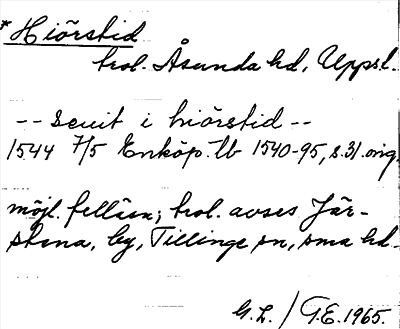 * Hiörstid
trol. Åsunda hd, Uppsl.
-- Scuit i hiörstid --
1544 7/5 Enköp. tb 1540-95, s. 31. orig.
möjl. felläsn; trol. avses Jär-
stena, by, Tillinge sn, sma hd.
G.L. / G.E. 1965.